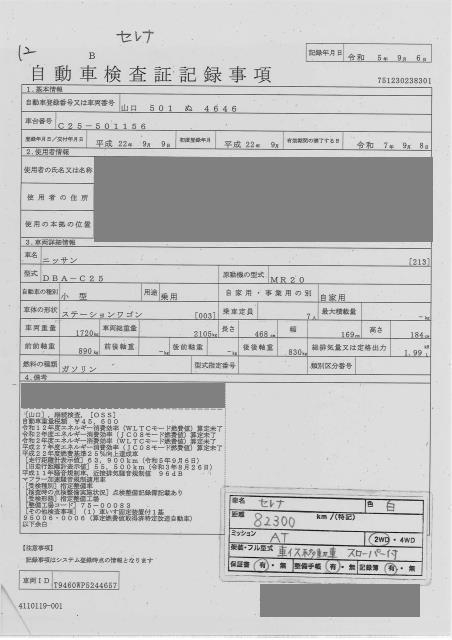 セレナ
12
B
記録年月日 令和 5年 9月 6日
自動車検査証記録事項
751230238301
1.基本情報
自動車登録番号又は車両番号 山口 501 ぬ 4646
車台番号 C25-501156
登録年月日/交付年月日 平成 22年 9月 9日 初度登録年月 平成 22年 9月 有効期間の満了する日 令和 7年 9月 8日
2.使用者情報
使用者の氏名又は名称
使用者の住所
使用の本拠の位置
3.車両詳細情報
車名 ニッサン [213]
型式 DBA-C25 原動機の型式 MR20
自動車の種別 小型 用途 乗用 自家用・事業用の別 自家用
車体の形状 ステーションワゴン [003] 乗車定員 7人 最大積載量 -kg
車両重量 1720kg 車両総重量 2105kg 長さ 468cm 幅 169cm 高さ 184cm
前前軸重 890kg 前後軸重 -kg 後前軸重 -kg 後後軸重 830kg 総排気量又は定格出力 1.99L
燃料の種類 ガソリン 型式指定番号 類別区分番号
4.備考
[山口],継続検査,[OSS]
自動車重量税額 ¥45,600
令和12年度エネルギー消費効率(WLTCモード燃費値)算定未了
令和2年度エネルギー消費効率(JC08モード燃費値)算定未了
令和2年度エネルギー消費効率(WLTCモード燃費値)算定未了
平成27年度エネルギー消費効率(JC08モード燃費値)算定未了
平成22年度燃費基準25%向上達成車
[走行距離計表示値]63,900km(令和5年9月6日)
[旧走行距離計表示値]55,500km(令和3年8月26日)
平成11年騒音規制車,近接排気騒音規制値 96dB
マフラー加速騒音規制適用車
[受検種別]指定整備車
[検査時の点検整備実施状況]点検整備記録簿記載あり
[受検形態]指定整備工場
[整備工場コード]75-00083
[その他検査事項](1)車いす固定装置付1基
95006-0006(算定燃費値取得済特定改造自動車)
以下余白
車名 セレナ 色 白
距離 82300 km/(特記)
ミッション AT 2WD・4WD
架装・フル型式 車イス移動車 スローパー付
保証書 有・無 整備手帳 有・無 記録簿 有・無
【注意事項】
記録事項はシステム登録時点の情報となります
車両ID T9460WP5244657
4110119-001